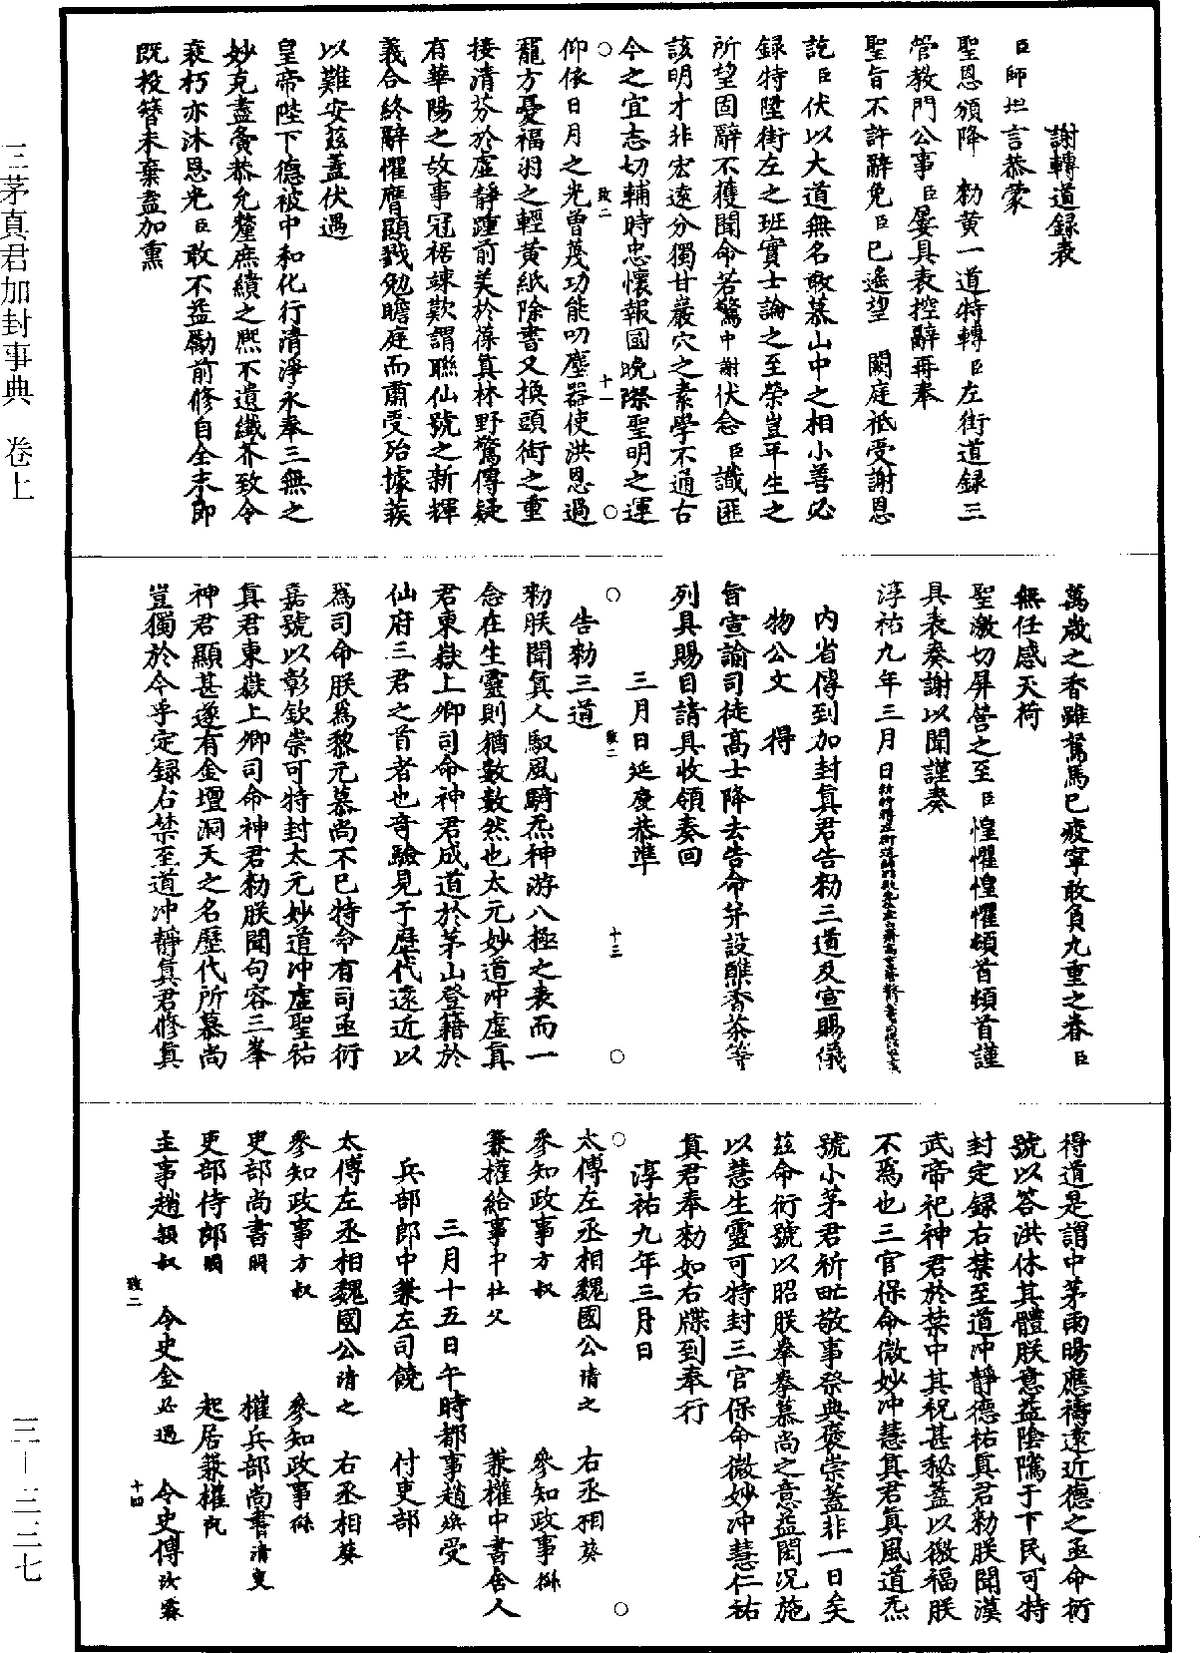 謝轉道録表
臣師坦言恭蒙
聖恩頒降　勅黄一道特轉臣左街道録三
管教門公事臣屢具表控辭再奉
聖旨不許辭免臣已遙望　闕庭祗受謝恩
訖臣伏以大道無名敢慕山中之相小善必
録特陞街左之班實士論之至榮豈平生之
所望固辭不獲聞命若驚中謝伏念臣識匪
該明才非宏遠分獨甘巖穴之素學不通古
今之宜志切輔時忠懷報國晚際聖明之運
致二　十一
仰依日月之光曾蔑功能叨塵器使洪恩過
寵方憂福羽之輕黄紙除書又換頭銜之重
接清芬於虛靜踵前美於葆真林野驚傳疑
有華陽之故事冠裾竦歎謂聯仙號之新輝
義合終辭懼膺顯戮勉瞻庭而肅受殆據蒺
以難安兹蓋伏遇
皇帝陛下德被中和化行清淨永奉三無之
妙克盡夤恭允釐庶績之熈不遺纖芥致令
衰朽亦沐恩光臣敢不益勵前修自全末節
既投簪未棄盍加熏
萬歲之香雖駑馬已疲寧敢負九重之眷臣
無任感天荷
聖激切屏營之至臣惶懼惶懼頓首頓首謹
具表奏謝以聞謹奏
淳祐九年三月　日
内省傳到加封真君告勅三道及宣賜儀
物公文　得
旨宣諭司徒高士降去告命并設醮香茶等
列具賜目請具收領奏回
三月日延慶恭準
致二　十三
告勅三道
勅朕聞真人馭風騎炁神游八極之表而一
念在生靈則猶數數然也太元妙道冲虛真
君東嶽上卿司命神君成道於茅山登籍於
仙府三君之首者也奇驗見于歷代遠近以
為司命朕為黎元慕尚不已特命有司亟衍
嘉號以彰欽崇可特封太元妙道冲虛聖祐
真君東嶽上卿司命神君勅朕聞句容三峯
神君顯甚遂有金壇洞天之名歷代所慕尚
豈獨於今乎定録右禁至道冲靜真君修真
得道是謂中茅雨暘應禱遠近德之亟命衍
號以答洪休其體朕意益陰隲于下民可特
封定録右禁至道冲靜德祐真君勅朕聞漢
武帝祀神君於禁中其祝甚秘蓋以徼福朕
不為也三官保命微妙冲慧真君真風道炁
號小茅君祈甿敬事祭典褒崇蓋非一日矣
兹命衍號以昭朕拳拳慕尚之意益閎况施
以慧生靈可特封三官保命微妙冲慧仁祐
真君奉勅如右牒到奉行
淳祐九年三月日
太傅左丞相魏國公清之　右丞相葵
參知政事方叔　參知政事
兼權給事中　兼權中書舍人
三月十五日午時都事趙　受
兵部郎中兼左司饒　付吏部
太傅左丞相魏國公清之　右丞相葵
參知政事方叔　參知政事
吏部尚書　權兵部尚書清叟
吏部侍郎　起居兼權
主事趙穎叔　令史金　令史傅
致二　十四
三茅真君加封事典　卷上
三—三三七